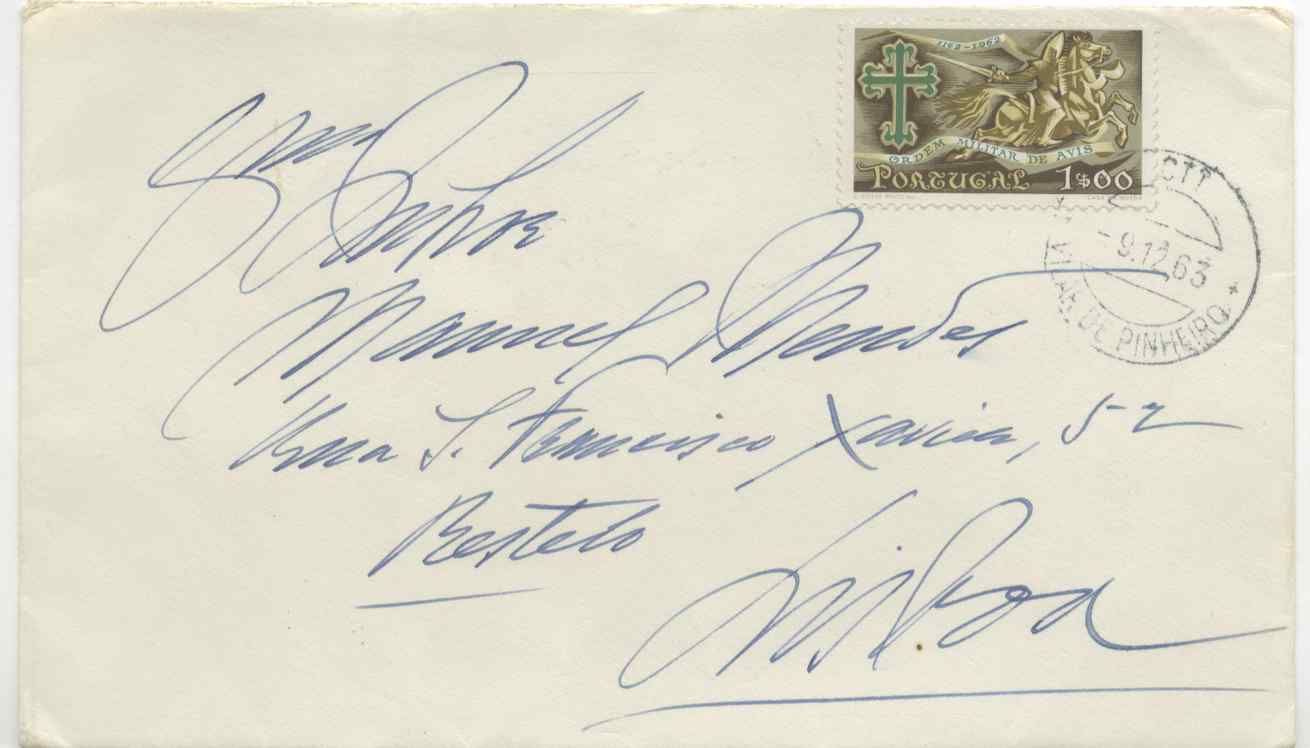 1162-1962
ORDEM MILITAR DE AVIS
PORTUGAL 1$00
CTT
-9.12.63
VILAR DE PINHEIRO
Exmo
Senhor
Manuel Mendes
Rua S. Francisco Xavier, 52
Restelo
Lisboa